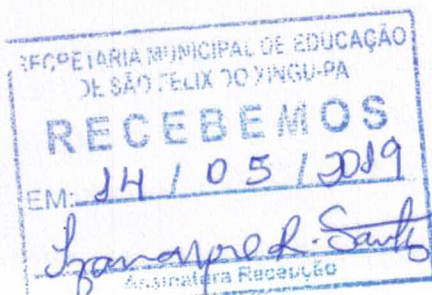 SECRETARIA MUNICIPAL DE EDUCAÇÃO
DE SÃO FELIX DO XINGU-PA
RECEBEMOS
EM: 14 / 05 / 2019
R. Santos
Assinatura Recepção